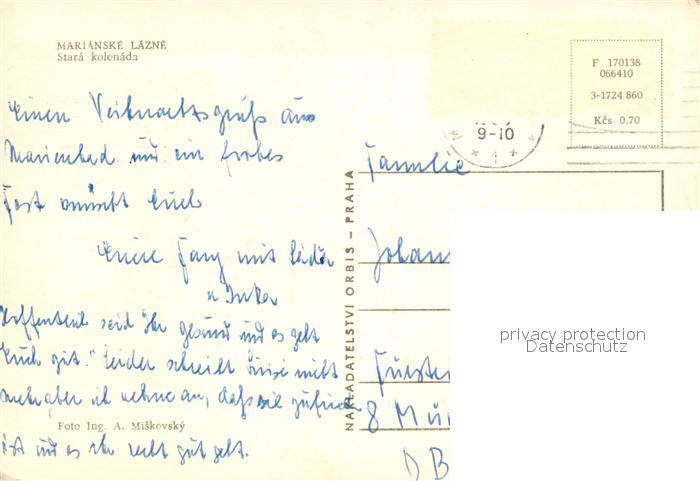 MARIÁNSKÉ LÁZNĚ
Stará kolonáda
F 170138
066410
3-1724 860
Kčs 0,70
9-10
Einen Weihnachtsgruß aus
Marienbad und ein frohes
Fest wünscht Euch
Eure Fany mit
u
Hoffentlich seid Ihr gesund und es geht
Euch gut. Leider schreibt nicht
mehr aber ich nehme an, daß sie zufrieden
ist und es ihr recht gut geht.
Foto Ing. A. Miškovský
NAKLADATELSTVÍ ORBIS – PRAHA
Familie
Johan
Fürsten
8 Mün
D B
privacy protection
Datenschutz